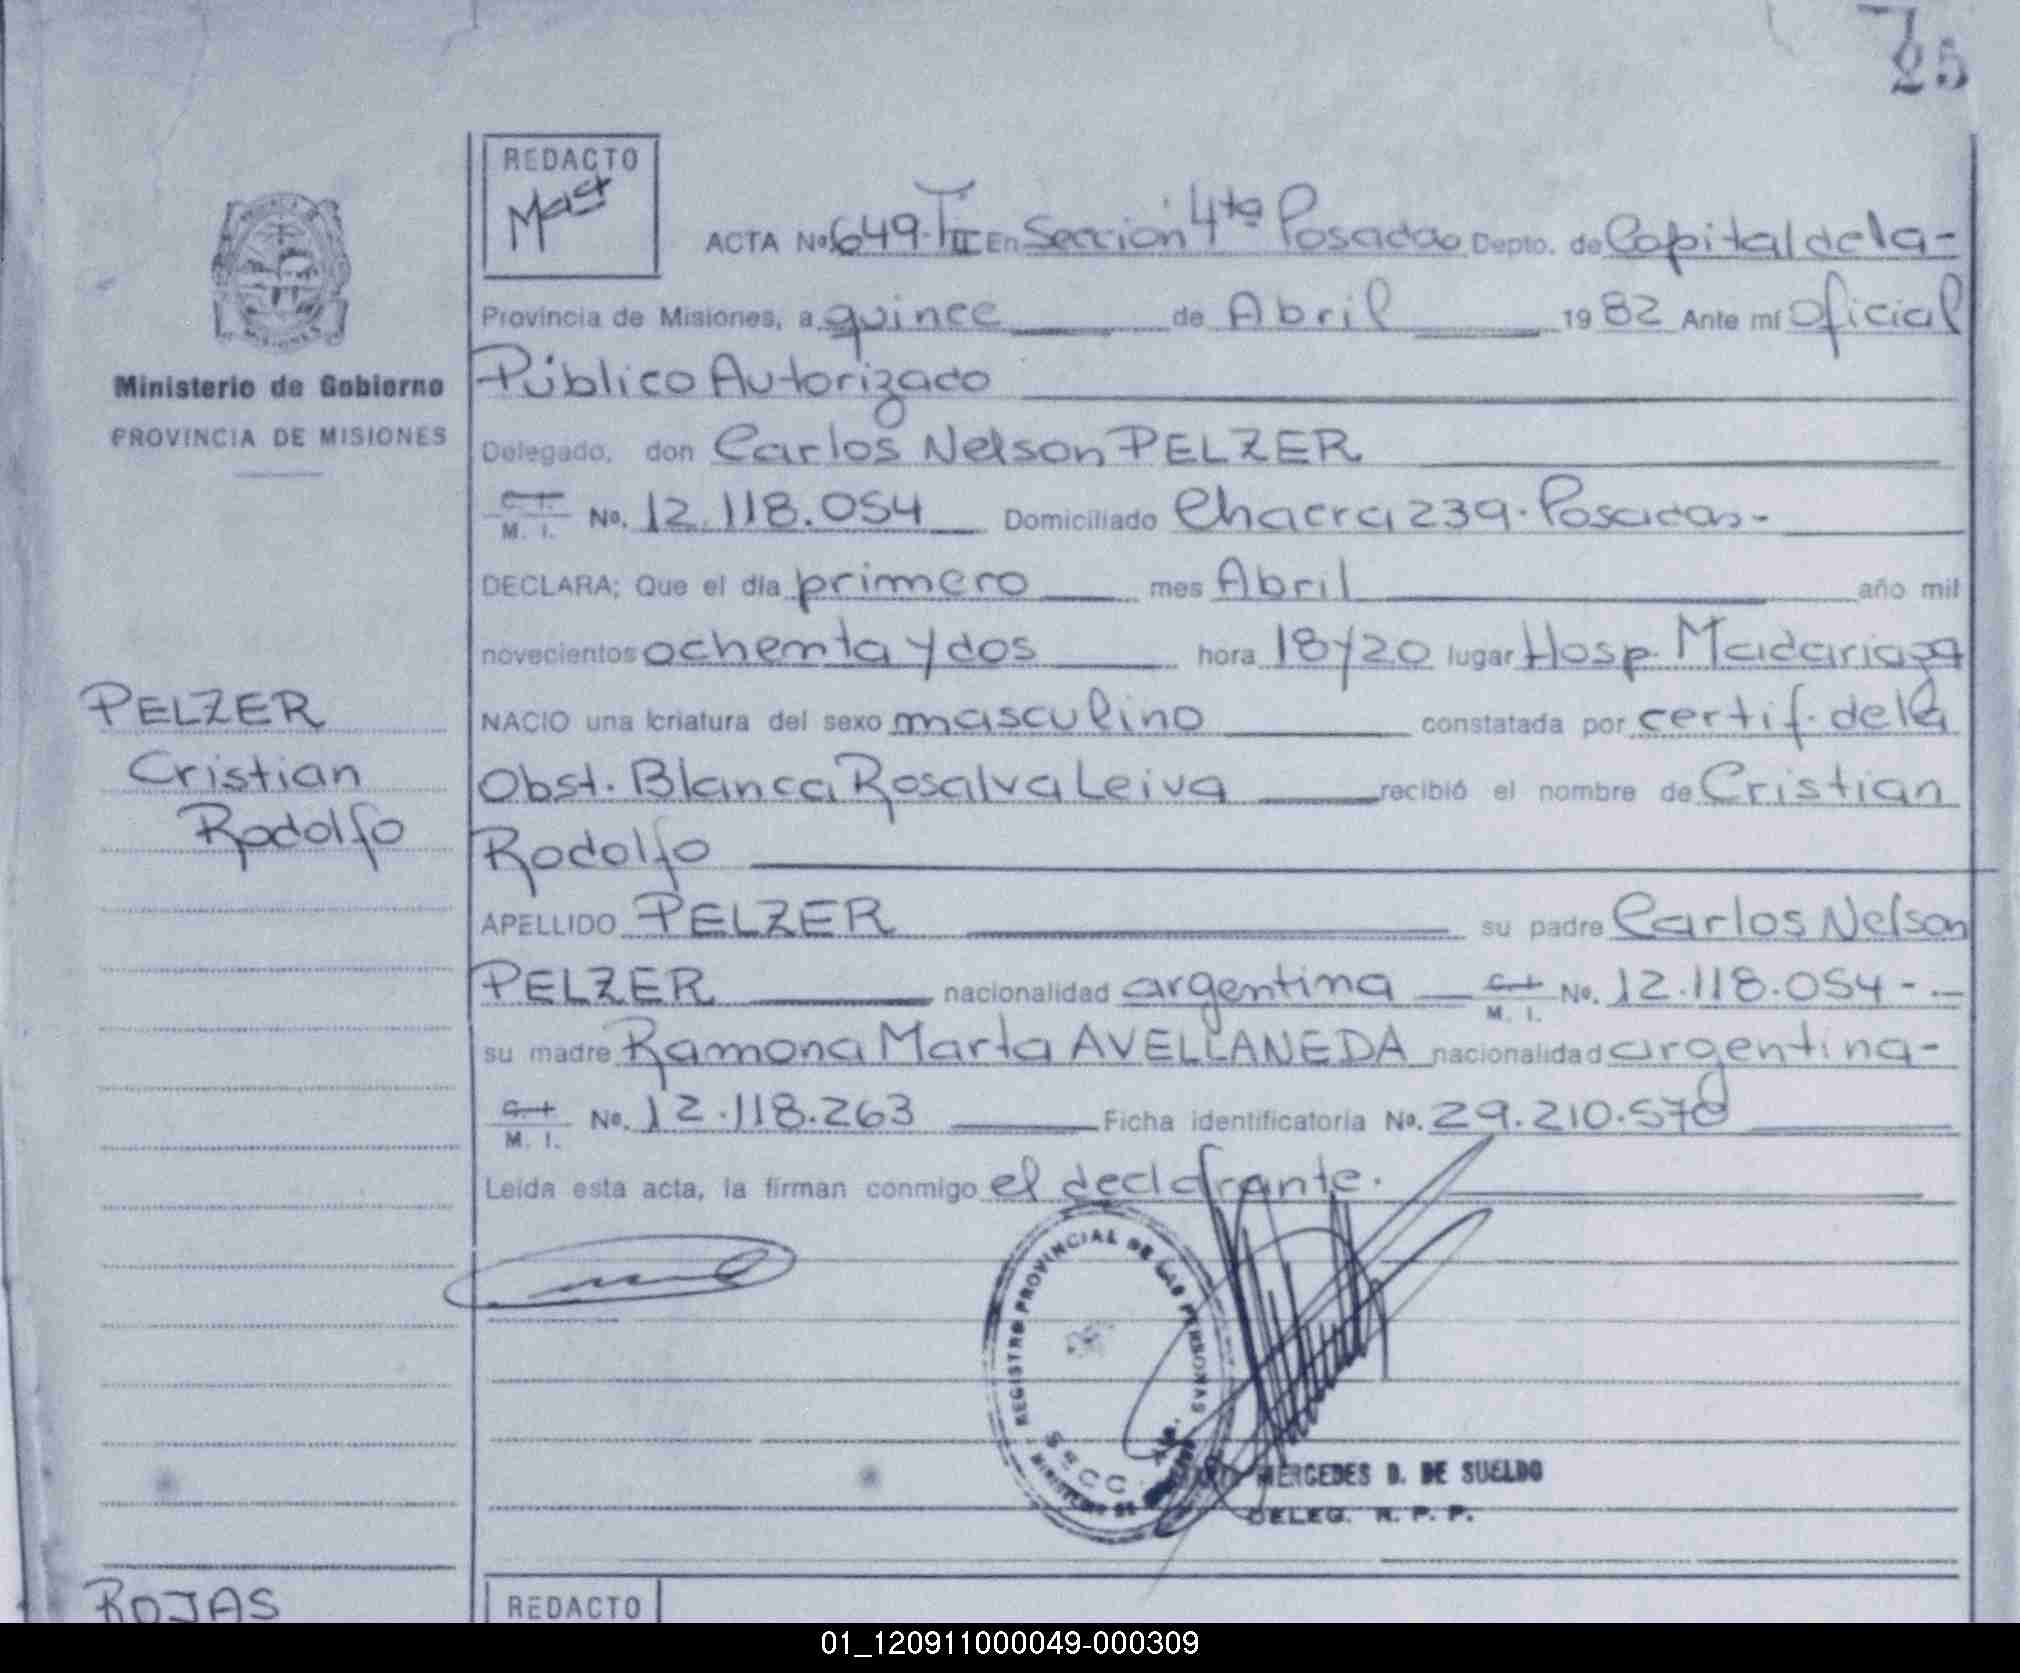 25
REDACTO
ACTA No. 649-T II En Sección 4ta Posadas Depto. de Capital de la-
Provincia de Misiones, a quince de Abril 1982 Ante mí Oficial
Público Autorizado
Delegado, don Carlos Nelson PELZER
C. I. M. I. No. 12.118.054 Domiciliado Chacra 239. Posadas-
DECLARA; Que el día primero mes Abril año mil
novecientos ochenta y dos hora 18y20 lugar Hosp. Madariaga
NACIO una criatura del sexo masculino constatada por certif. de la
Obst. Blanca Rosalva Leiva recibió el nombre de Cristian
Rodolfo
APELLIDO PELZER su padre Carlos Nelson
PELZER nacionalidad argentina C. I. M. I. No. 12.118.054-.-
su madre Ramona Marta AVELLANEDA nacionalidad argentina-
C. I. M. I. No. 12.118.263 Ficha identificatoria No. 29.210.578
Leida esta acta, la firman conmigo el declarante.
REGISTRO PROVINCIAL DE LAS PERSONAS
SECC
MERCEDES D. DE SUELDO
DELEG. R. P. P.
Ministerio de Gobierno
PROVINCIA DE MISIONES
PELZER
Cristian
Rodolfo
ROJAS
REDACTO
01_120911000049-000309